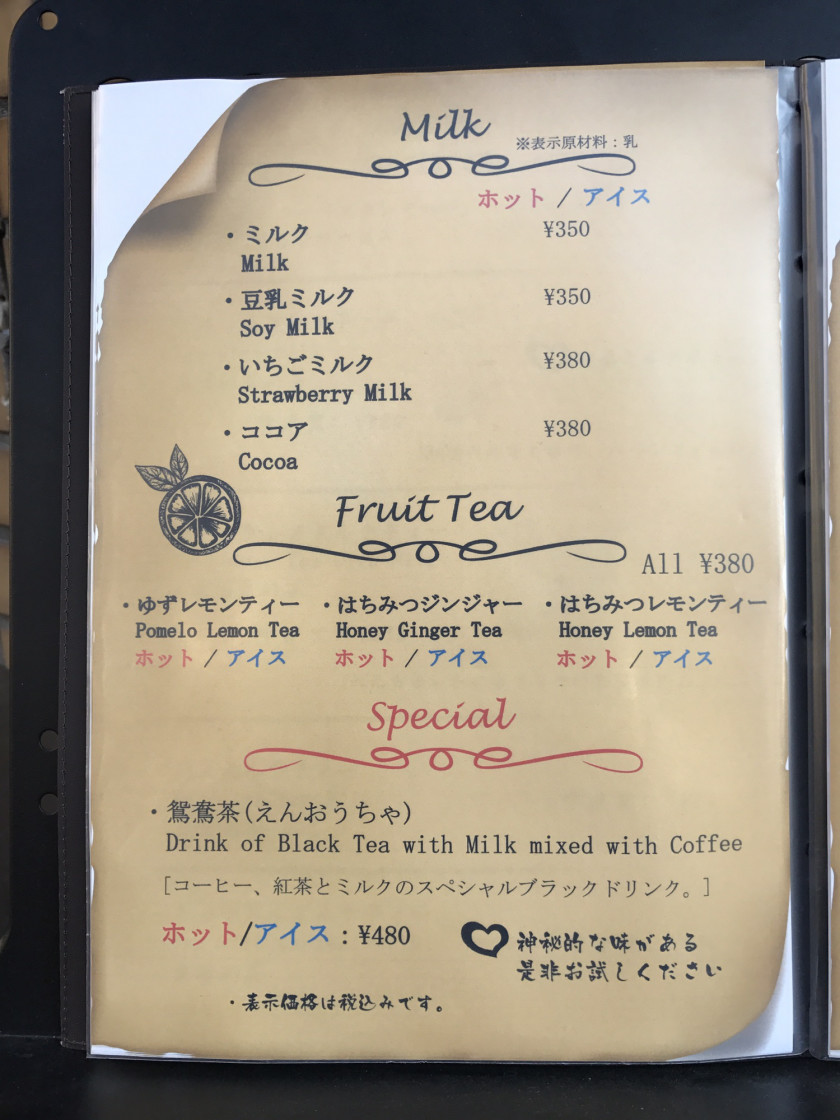 Milk
※表示原材料：乳
ホット / アイス
・ミルク ¥350
Milk
・豆乳ミルク ¥350
Soy Milk
・いちごミルク ¥380
Strawberry Milk
・ココア ¥380
Cocoa
Fruit Tea
All ¥380
・ゆずレモンティー ・はちみつジンジャー ・はちみつレモンティー
Pomelo Lemon Tea Honey Ginger Tea Honey Lemon Tea
ホット / アイス ホット / アイス ホット / アイス
Special
・鴛鴦茶(えんおうちゃ)
Drink of Black Tea with Milk mixed with Coffee
[コーヒー、紅茶とミルクのスペシャルブラックドリンク。]
ホット/アイス：¥480
神秘的な味がある
是非お試しください
・表示価格は税込みです。